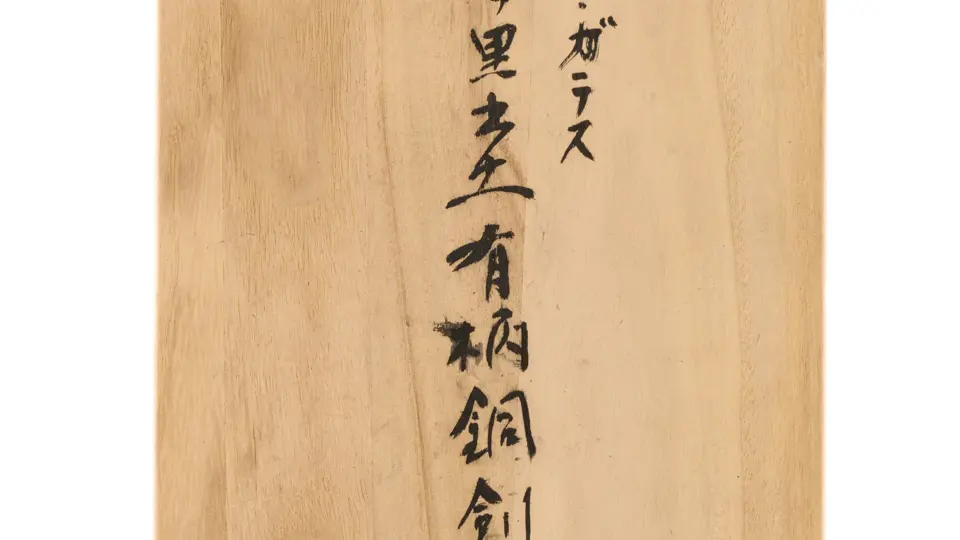 ガラス
里出土有柄銅剣